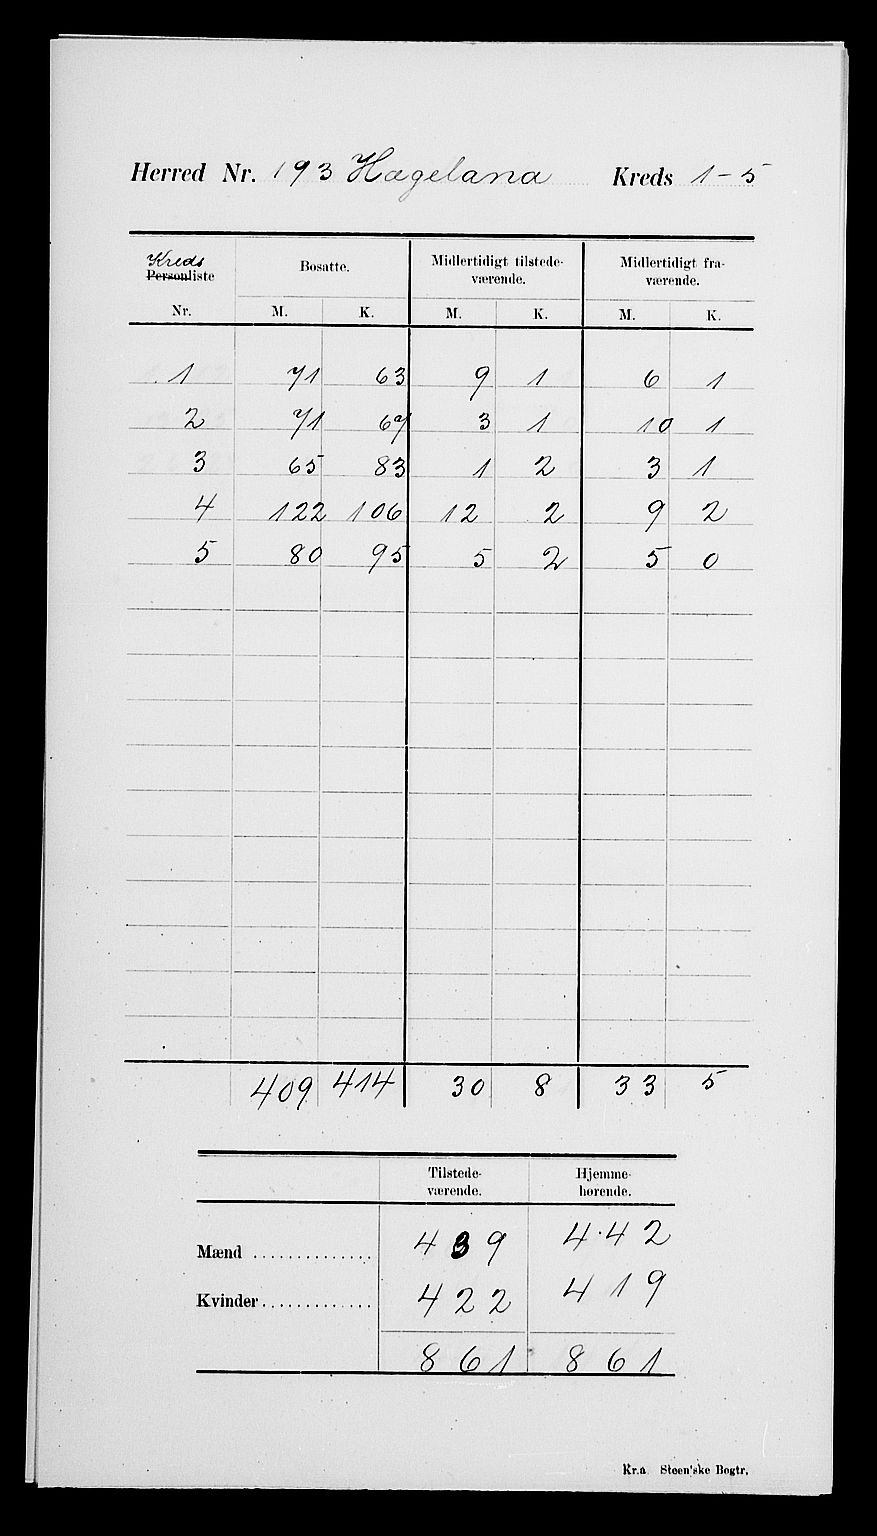 Herred Nr. 193 Hægeland Kreds 1-5
Kreds
Personliste Nr. Bosatte. Midlertidigt tilstede-værende. Midlertidigt fra-værende.
M. K. M. K. M. K.
1 71 63 9 1 6 1
2 71 67 3 1 10 1
3 65 83 1 2 3 1
4 122 106 12 2 9 2
5 80 95 5 2 5 0
409 414 30 8 33 5
Tilstede-værende. Hjemme-hørende.
Mænd .............. 439 442
Kvinder ............. 422 419
861 861
Kr.a Steen'ske Bogtr.